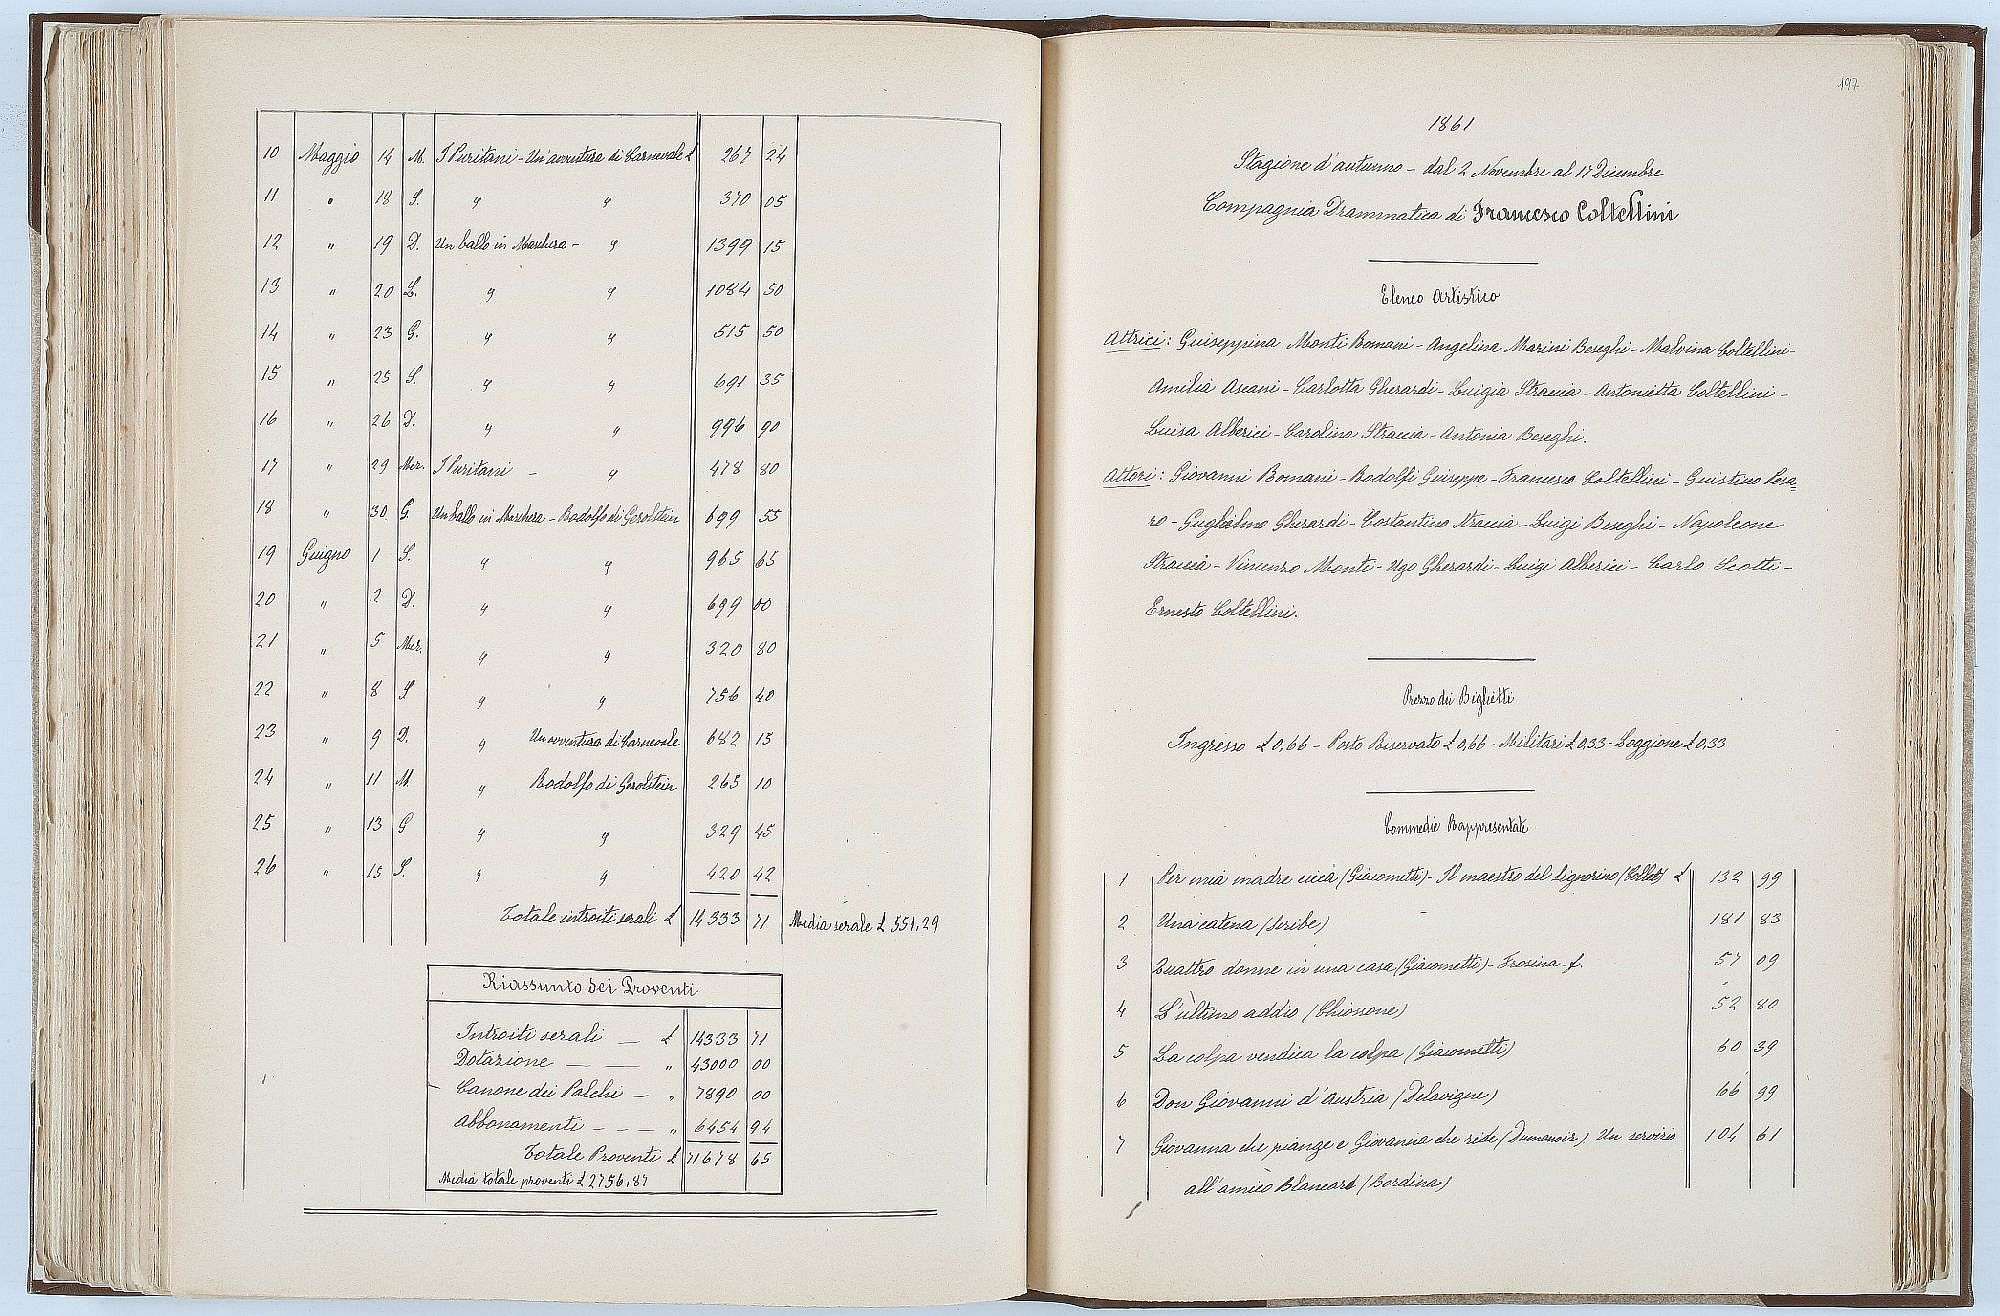 10 Maggio 14 M. I Puritani - Un'avventura di Carnevale £ 267 24
11 " 18 S. " " 370 05
12 " 19 D. Un ballo in Maschera - " 1399 15
13 " 20 L. " " 1084 50
14 " 23 G. " " 515 50
15 " 25 S. " " 691 35
16 " 26 D. " " 996 90
17 " 29 Mer. I Puritani - " 478 80
18 " 30 G. Un ballo in Maschera - Rodolfo di Gerolstein 699 55
19 Giugno 1 S. " " 965 65
20 " 2 D. " " 699 00
21 " 5 Mer. " " 320 80
22 " 8 S " " 756 40
23 " 9 D. " Un avventura di Carnevale 682 15
24 " 11 M. " Rodolfo di Gerolstein 265 10
25 " 13 G " " 329 45
26 " 15 S. " " 420 42
Totale introiti serali £ 14333 71 Media serale £ 551,29
Riassunto dei Proventi
Introiti serali — £ 14333 71
Dotazione — — " 43000 00
Canone dei Palchi — " 7890 00
Abbonamenti — — — " 6454 94
Totale Proventi £ 71678 65
Media totale proventi £ 2756,87
197
1861
Stagione d'autunno - dal 2 Novembre al 17 Dicembre
Compagnia Drammatica di Francesco Coltellini
Elenco Artistico
Attrici: Giuseppina Monti Romani - Angelina Marini Beseghi - Malvina Coltellini -
Amelia Ascani - Carlotta Gherardi - Luigia Straccia - Antonietta Coltellini -
Luisa Alberici - Carolina Straccia - Antonia Beseghi.
Attori: Giovanni Romani - Rodolfi Giuseppe - Francesco Coltellini - Giustino Pesa=
ro - Guglielmo Gherardi - Costantino Straccia - Luigi Beseghi - Napoleone
Straccia - Vincenzo Monti - Ugo Gherardi - Luigi Alberici - Carlo Scotti -
Ernesto Coltellini.
Prezzo dei Biglietti
Ingresso £ 0,66 - Posto Riservato £ 0,66 - Militari £ 0,33 - Loggione £ 0,33
Commedie Rappresentate
1 Per mia madre cieca (Giacometti) - Il maestro del signorino £ 132 99
2 Una catena (Scribe) 181 83
3 Quattro donne in una casa (Giacometti) - Frosina f. 57 09
4 L'ultimo addio (Chiossone) 52 80
5 La colpa vendica la colpa (Giacometti) 60 39
6 Don Giovanni d'Austria (Delavigne) 66 99
7 Giovanna che piange e Giovanna che ride (Dumanoir) Un servizio 104 61
all'amico Blancard (Bordina)